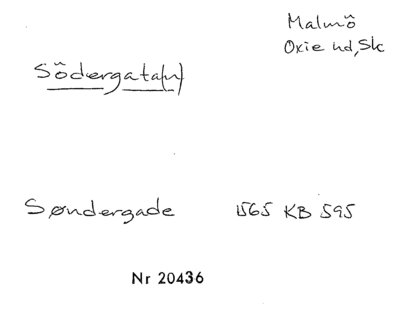 Malmö
Oxie hd, Sk
Södergata(n)
Søndergade 1565 KB 595
Nr 20436